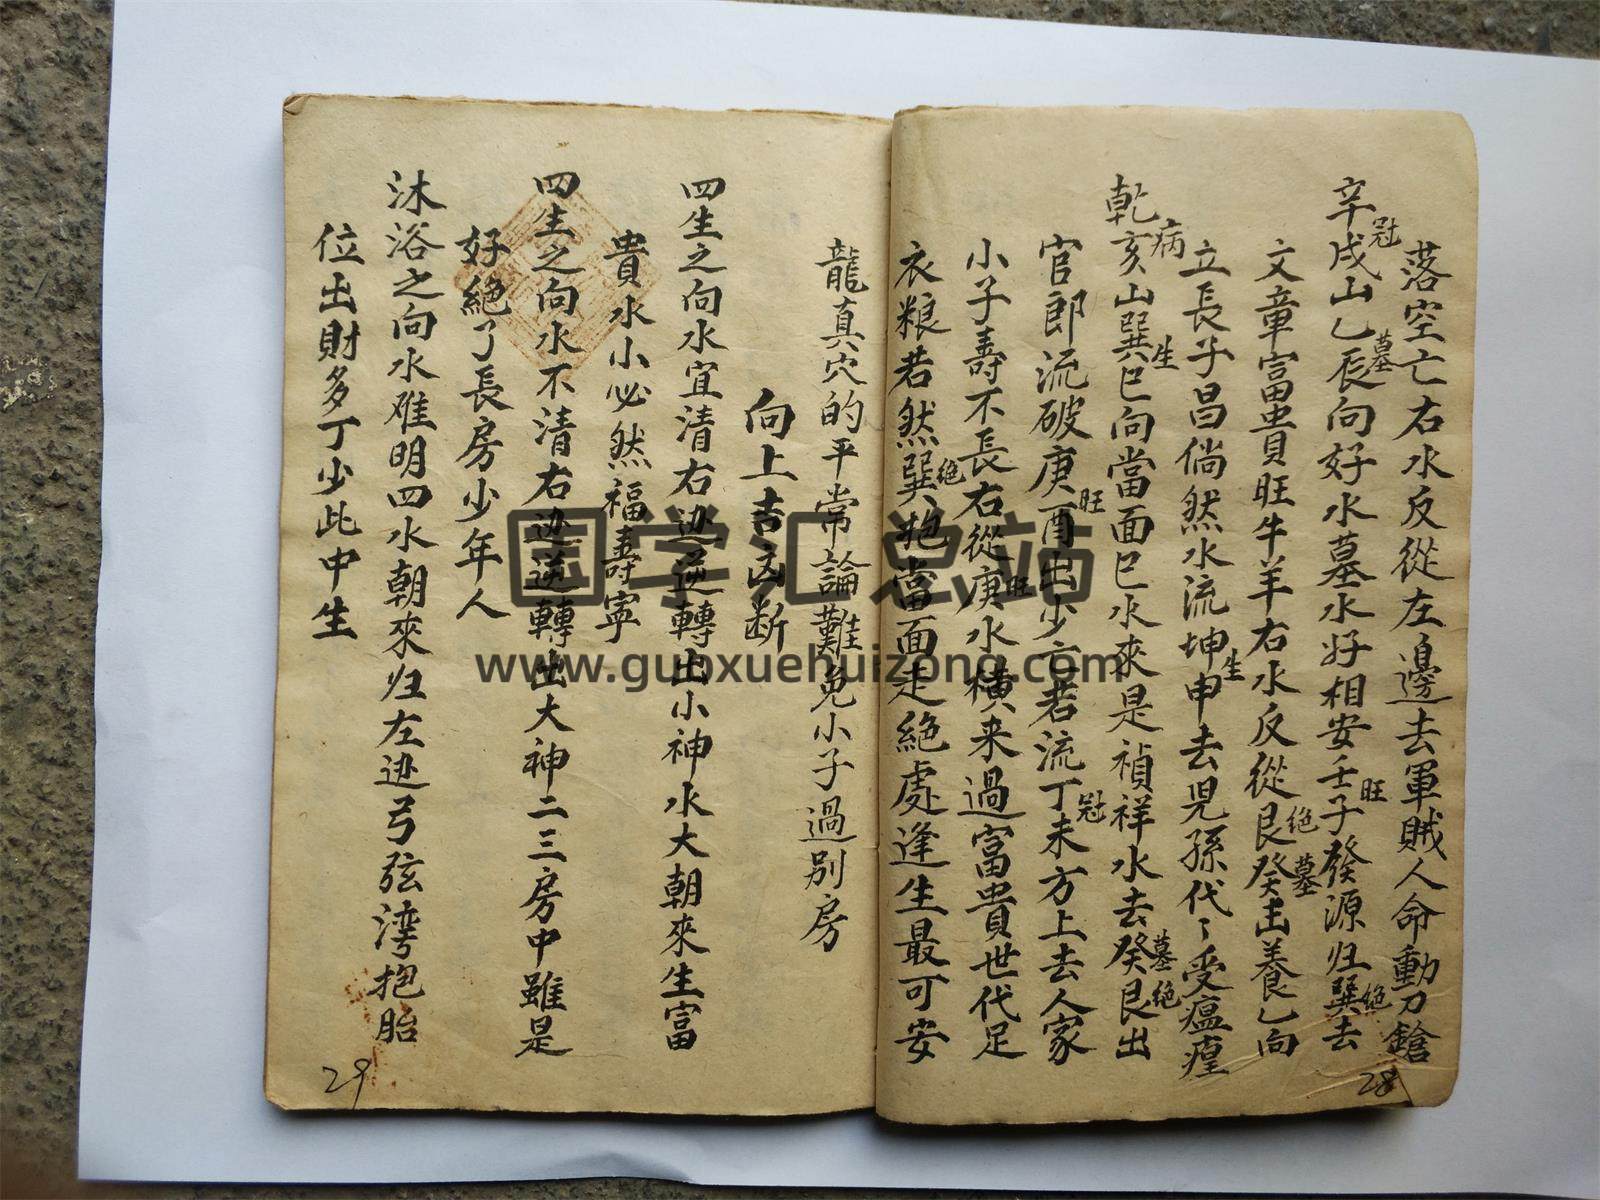 落空亡右水反從左邊去軍賊人命動刀鎗
辛戌山乙辰向好水墓水好相安壬子發源归巽去
冠 墓 旺 绝
文章富貴旺牛羊右水反從艮癸出養乙向
绝 墓
立長子昌倘然水流坤申去児孫代々受瘟瘽
生
乾亥山巽巳向當面巳水來是禎祥水去癸艮出
病 生 墓 绝
官郎流破庚酉出少亡若流丁未方上去人家
旺 冠
小子壽不長右從庚水横来過富貴世代足
旺
衣粮若然巽抱當面走絶處逢生最可安
绝
28
龍真穴的平常論難免小子過别房
向上吉凶断
四生之向水宜清右边逆轉出小神水大朝來生富
貴水小必然福壽寧
四生之向水不清右边逆轉出大神二三房中雖是
好絶了長房少年人
沐浴之向水难明四水朝來归左边弓弦湾抱胎
位出財多丁少此中生
29
国学汇总站
www.guoxuehuizong.com